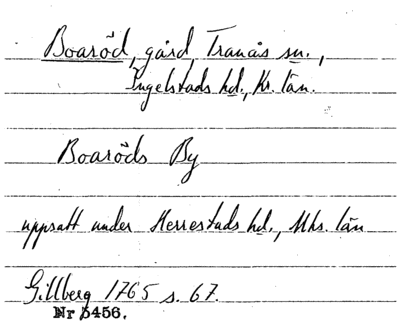 Boaröd, gård, Tranås sn.,
Ingelstads hd., Kr. län.
Boaröds By
uppsatt under Herrestads hd., Mhs. län
Gillberg 1765 s. 67.
Nr 5456.